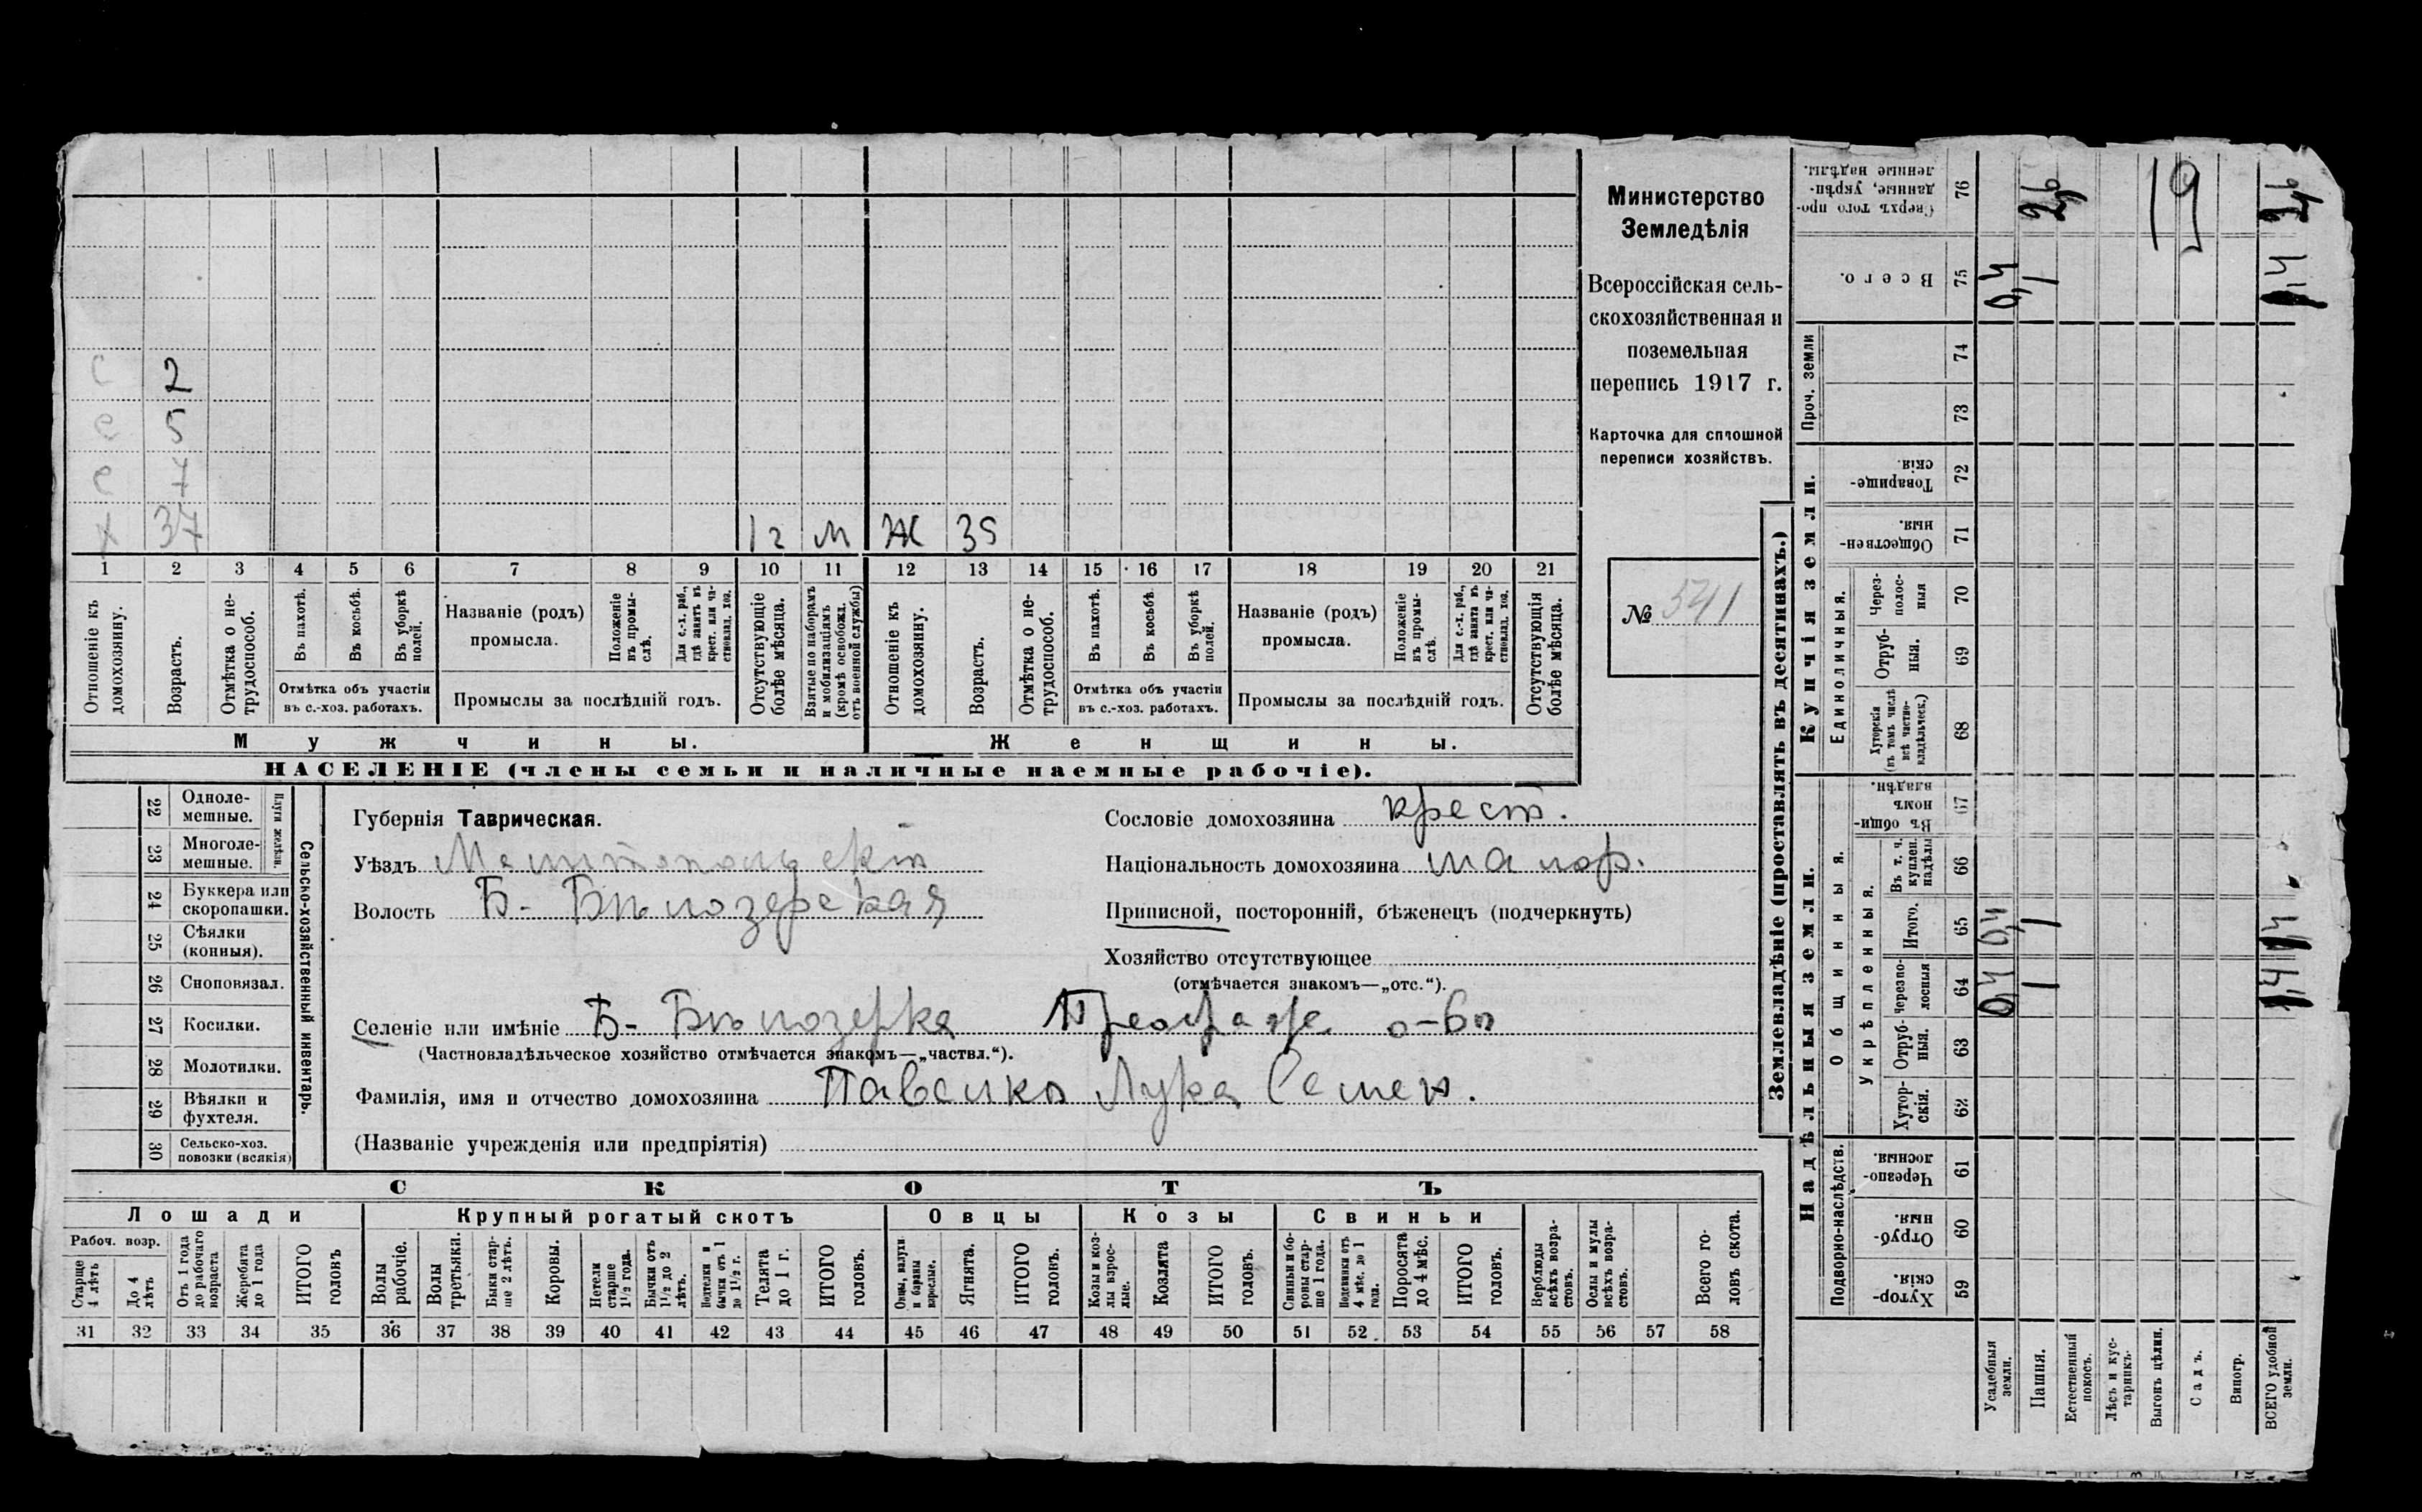 2
5
7
Х 37 1 г М Ж 35
1 2 3 4 5 6 7 8 9 10 11 12 13 14 15 16 17 18 19 20 21
Отношеніе къ домохозяину.
Возрастъ.
Отмѣтка о не-трудоспособ.
Въ пахотѣ.
Въ косьбѣ.
Въ уборкѣ полей.
Отмѣтка объ участіи
въ с.-хоз. работахъ.
Названіе (родъ)
промысла.
Положеніе въ промы-слѣ.
Для с.-х. раб., гдѣ занятъ въ крест. или ча-стновлад. хоз.
Промыслы за послѣдній годъ.
Отсутствующіе болѣе мѣсяца.
Взятые по наборамъ и мобилизаціямъ (кромѣ освобожд. отъ военной службы)
Отношеніе къ домохозяину.
Возрастъ.
Отмѣтка о не-трудоспособ.
Въ пахотѣ.
Въ косьбѣ.
Въ уборкѣ полей.
Отмѣтка объ участіи
въ с.-хоз. работахъ.
Названіе (родъ)
промысла.
Положеніе въ промы-слѣ.
Для с.-х. раб., гдѣ занятъ въ крест. или ча-стновлад. хоз.
Промыслы за послѣдній годъ.
Отсутствующія болѣе мѣсяца.
Мужчины.
Женщины.
НАСЕЛЕНІЕ (члены семьи и наличные наемные рабочіе).
Министерство
Земледѣлія
Всероссійская сель-
скохозяйственная и
поземельная
перепись 1917 г.
Карточка для сплошной
переписи хозяйствъ.
№ 541
Сельско-хозяйственный инвентарь.
Плуги желѣзн.
22 Одноле-
мешные.
23 Многоле-
мешные.
24 Буккера или
скоропашки.
25 Сѣялки
(конныя).
26 Сноповязал.
27 Косилки.
28 Молотилки.
29 Вѣялки и
фухтеля.
30 Сельско-хоз.
повозки (всякія)
Губернія Таврическая.
Уѣздъ Мелитопольскій
Волость Б- Бѣлозерская
Сословіе домохозяина крест.
Національность домохозяина малор.
Приписной, посторонній, бѣженецъ (подчеркнуть)
Хозяйство отсутствующее
(отмѣчается знакомъ—„отс.“).
Селеніе или имѣніе Б- Бѣлозерка о-во
(Частновладѣльческое хозяйство отмѣчается знакомъ—„частвл.“).
Фамилія, имя и отчество домохозяина Павелко Лука Семен.
(Названіе учрежденія или предпріятія)
СКОТЪ
Лошади
Крупный рогатый скотъ
Овцы
Козы
Свиньи
Рабоч. возр.
Старше 4 лѣтъ
До 4 лѣтъ
Отъ 1 года до рабочаго возраста
Жеребята до 1 года
ИТОГО головъ
Волы рабочіе.
Волы третьяки.
Быки стар-ше 2 лѣтъ.
Коровы.
Нетели старше 1½ года.
Бычки отъ 1½ до 2 лѣтъ.
Подтелки и бычки отъ 1 до 1½ г.
Телята до 1 г.
ИТОГО головъ.
Овцы, валухи и бараны взрослые.
Ягнята.
ИТОГО головъ.
Козы и коз-лы взрос-лые.
Козлята
ИТОГО головъ.
Свиньи и бо-ровы стар-ше 1 года.
Подсвинки отъ 4 мѣс. до 1 года.
Поросята до 4 мѣс.
ИТОГО головъ.
Верблюды всѣхъ возра-стовъ.
Ослы и мулы всѣхъ возра-стовъ.
Всего го-ловъ скота.
31 32 33 34 35 36 37 38 39 40 41 42 43 44 45 46 47 48 49 50 51 52 53 54 55 56 57 58
Землевладѣніе (проставлять въ десятинахъ.)
Надѣльныя земли.
Купчія земли.
Проч. земли
Подворно-наслѣдств.
Общинныя.
Укрѣпленныя.
Единоличныя.
Сверхъ того про-данные, укрѣп-ленные надѣлы. 76
Всего. 75 0,4 1
74
73
Товарище-скія. 72
Обществен-ныя. 71
Через-полос-ныя 70
Отруб-ныя. 69
Хуторскія (въ томъ числѣ всѣ частно-владѣльческ.) 68
Въ общин-номъ владѣн. 67
Въ т. ч. куплен. надѣлы 66
Итого. 65 0,4 1
Черезпо-лосныя 64 0,4 1
Отруб-ныя. 63
Хутор-скія. 62
Черезпо-лосныя. 61
Отруб-ныя. 60
Хутор-скія. 59
19
Усадебныя земли.
Пашня.
Естественный покосъ.
Лѣсъ и кус-тарникъ.
Выгонъ цѣлин.
Садъ.
Виногр.
ВСЕГО удобной земли.